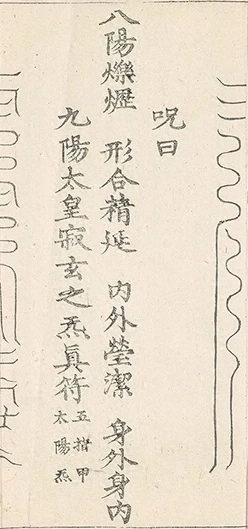 呪曰
八陽爍 形合精延 内外瑩潔 身外身内
九陽太皇寂玄之炁眞符
五指甲
太陽炁